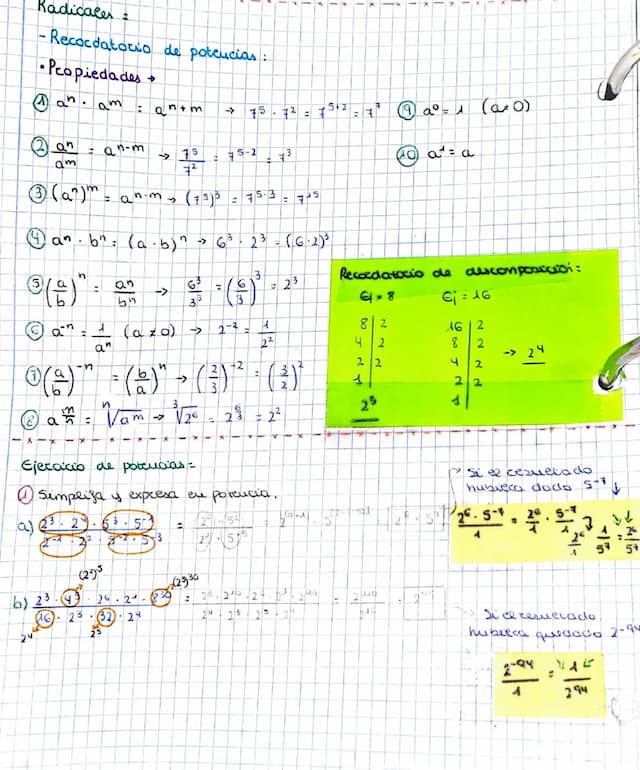 Radicales =
- Recordatorio de potencias :
• Propiedades →
① aⁿ · aᵐ = aⁿ⁺ᵐ → 7⁵ · 7² = 7⁵⁺² = 7⁷
⑨ a⁰ = 1 (a≠0)
② aⁿ/aᵐ = aⁿ⁻ᵐ → 7⁵/7² = 7⁵⁻² = 7³
⑩ a¹ = a
③ (aⁿ)ᵐ = aⁿ·ᵐ → (7⁵)³ = 7⁵·³ = 7¹⁵
④ aⁿ · bⁿ = (a · b)ⁿ → 6³ · 2³ = (6·2)³
⑤ (a/b)ⁿ = aⁿ/bⁿ → 6³/3³ = (6/3)³ = 2³
⑥ a⁻ⁿ = 1/aⁿ (a ≠ 0) → 2⁻² = 1/2²
⑦ (a/b)⁻ⁿ = (b/a)ⁿ → (2/3)⁻² = (3/2)²
⑧ a^(m/n) = ⁿ√aᵐ → ³√2⁶ = 2^(6/3) = 2²
Recordatorio de descomposición:
Ej = 8
8 | 2
4 | 2
2 | 2
1
2³
Ej = 16
16 | 2
8 | 2
4 | 2
2 | 2
1
→ 2⁴
Ejercicio de potencias =
① Simplifica y expresa en potencia.
a)
b)
(2²)⁵
16 · 2³ · 32 · 2⁴
2⁴
2⁵
Si el resultado
hubiera dado 5⁻⁷ ↓
2⁶ · 5⁻⁷/1 = 2⁶/1 · 5⁻⁷/1
2⁶/1 · 1/5⁷ = 2⁶/5⁷
Si el resultado
hubiera quedado 2⁻⁹⁴
2⁻⁹⁴/1 = 1/2⁹⁴